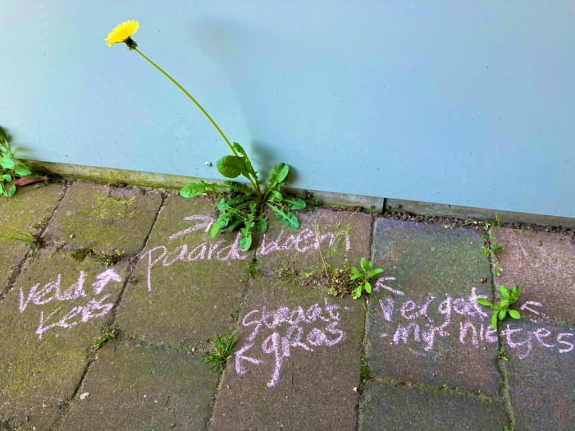 veld
kers
paardebloem
straat-
gras
vergeet
-mij nietjes